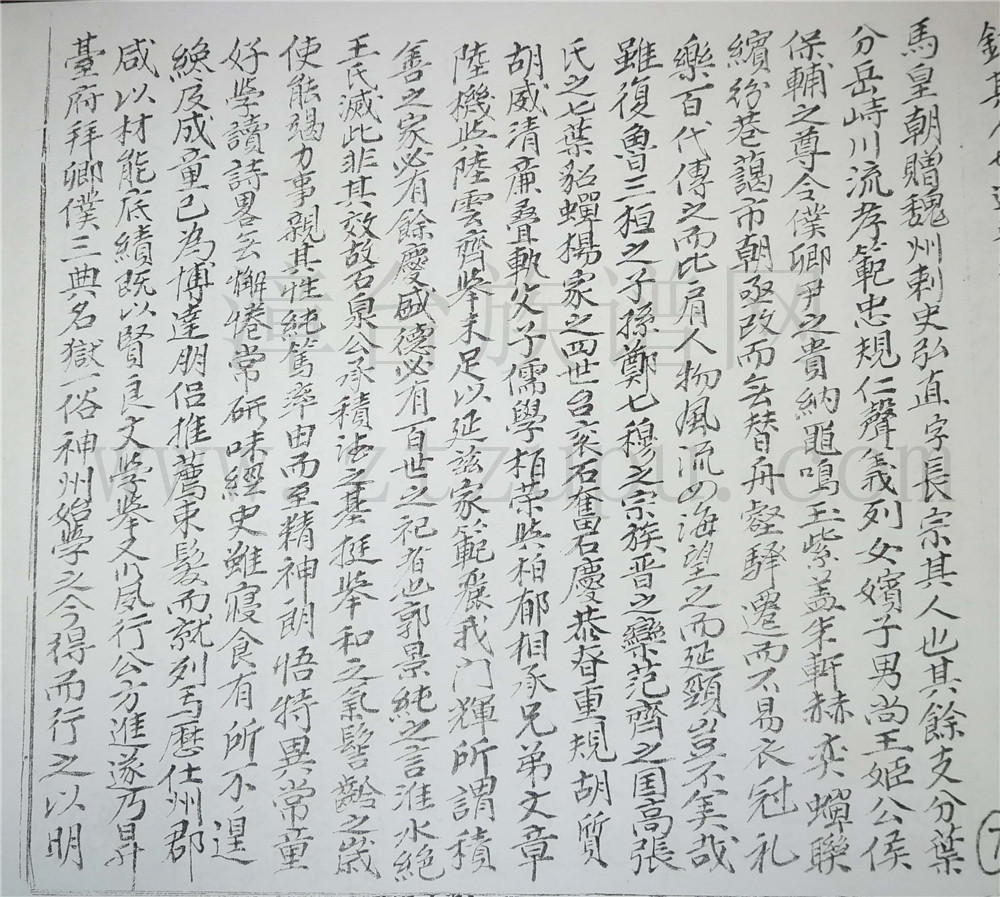 馬皇朝贈魏州刺史弘直字長宗其人也其餘支分葉
分岳峙川流孝範忠規仁聲義列女嬪子男尚王姬公侯
保輔之尊令僕卿尹之貴納鼂鳴玉紫盖朱軒赫奕蟬聯
繽紛巷藹市朝亟改而無替舟壑驛遷而不易衣冠礼
樂百代傳之而比肩人物風流四海望之而延頸豈不美哉
雖復魯三桓之子孫鄭七穆之宗族晋之欒范齊之国高張
氏之七葉貂蟬楊家之四世台袞石奮君慶恭眷重規胡質
胡威清廉叠軌父子儒學栢荣與栢郁相承兄弟文章
陸機與陸雲齊舉未足以延兹家範麗我門輝所謂積
善之家必有餘慶盛德必有百世之祀者也郭景純之言淮水絶
王氏滅此非其效故石泉公承積德之基挺挙和之氣髫齡之歲
使能竭力事親其性純篤率由而至精神朗悟特異常童
好學讀詩畧無懈惓常研味經史雖寝食有所不遑
綄及成童已為博達朋侣推薦束髮而就列焉歷仕州郡
咸以材能底績既以賢良文學舉又以風行公方進遂乃昇
臺府拜卿僕三典名獄一俗神州始學之今得而行之以明
www.ztzupu.com